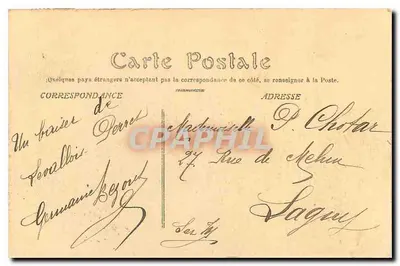 Carte Postale
Quelques pays étrangers n'acceptant pas la correspondance de ce côté, se renseigner à la Poste.
CORRESPONDANCE
ADRESSE
Un baiser de
Levallois Perret
Germaine
Mademoiselle P. Chotar
27 Rue de Melun
Lagny
CPAPHIL